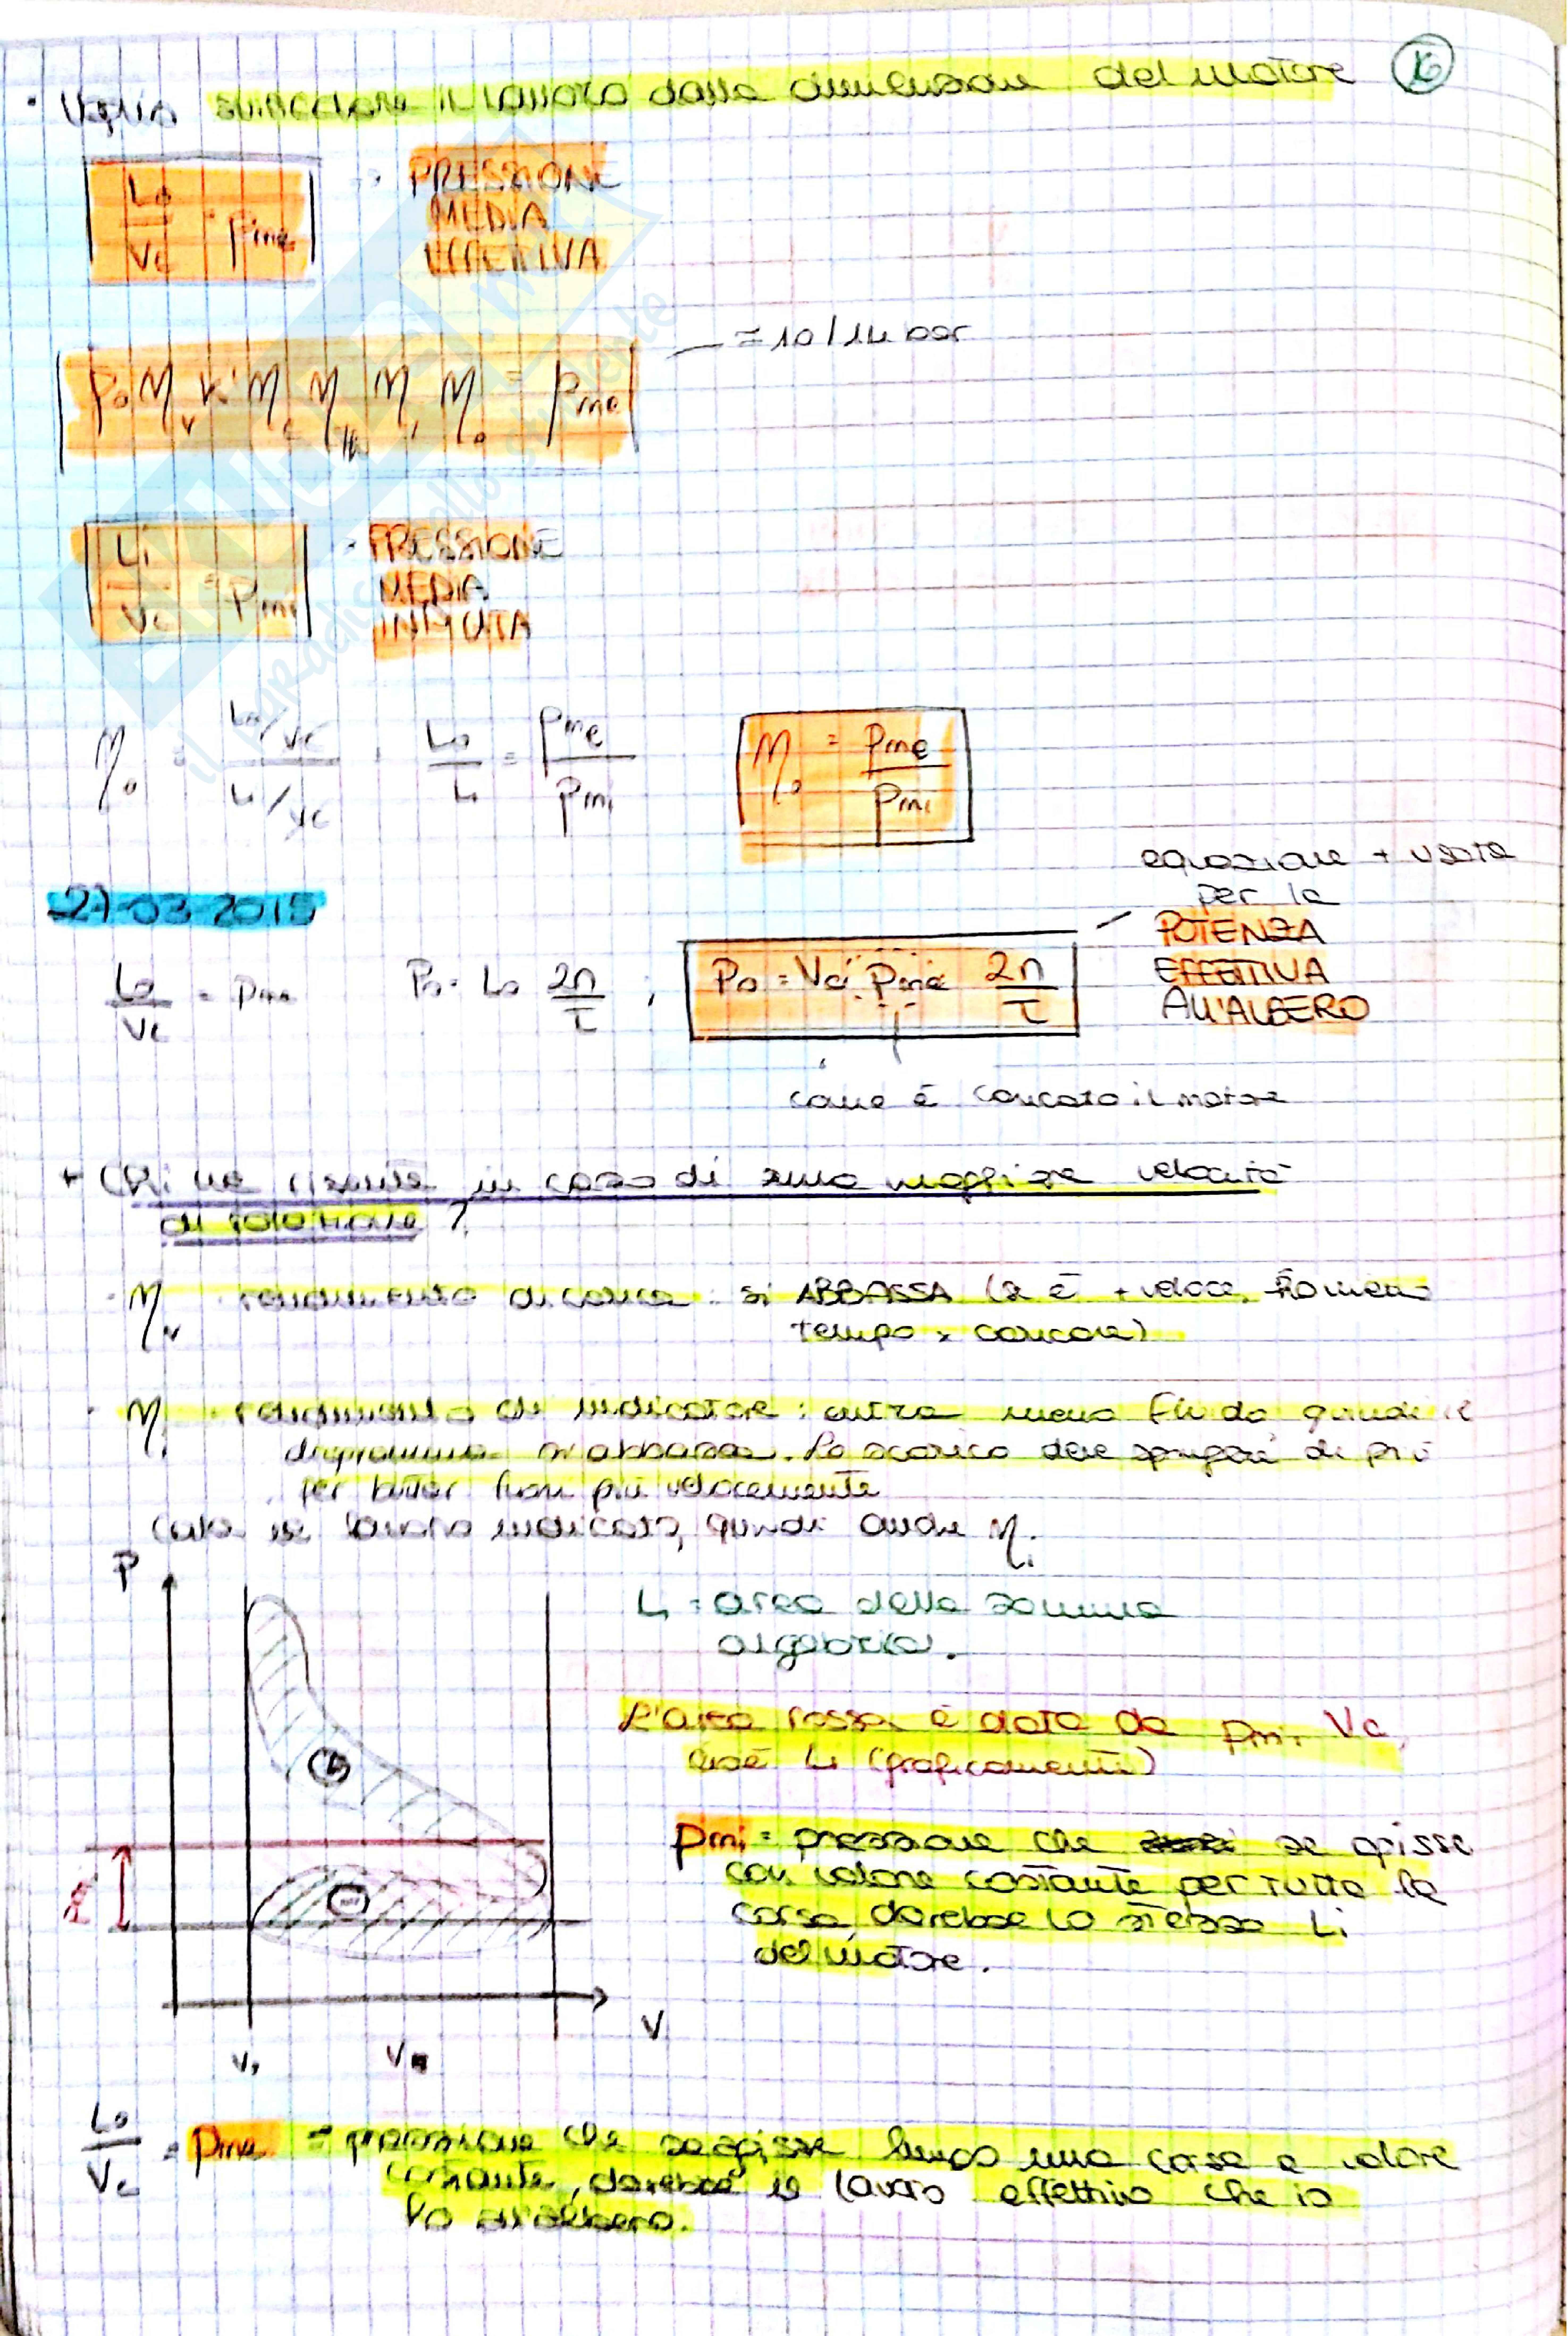 • Voglio svincolare il lavoro dalla dimensione del motore
16
Lo/Vc = pme → PRESSIONE
MEDIA
EFFETTIVA
= 10/14 bar
ηv ηi ηo = pme
Li/Vc = pmi → PRESSIONE
MEDIA
INDICATA
ηo = (Lo/Vc)/(Li/Vc) = Lo/Li = pme/pmi
ηo = pme/pmi
equazione + usata
per la
POTENZA
EFFETTIVA
ALL'ALBERO
27-03-2015
Lo/Vc = pme Po = Lo 2n/τ ; Po = Vc pme 2n/τ
come è caricato il motore
+ Chi ne risente in caso di una maggiore velocità
di rotazione?
• ηv rendimento di carica: si ABBASSA (se è + veloce, ho meno
tempo x caricare)
• ηi rendimento di indicatore: entra meno fluido quindi il
diagramma si abbassa. Lo scarico deve spingere di più
per butter fuori più velocemente
cala il lavoro indicato, quindi anche ηi
P
Li = area della somma
algebrica.
L'area rossa è data da pmi Vc,
cioè Li (graficamente)
pmi = pressione che se agisse
con valore costante per tutta la
corsa, darebbe lo stesso Li
del motore.
+
−
V
Lo/Vc = pme = pressione che se agisse lungo una corsa a valore
costante, darebbe il lavoro effettivo che io
ho all'albero.